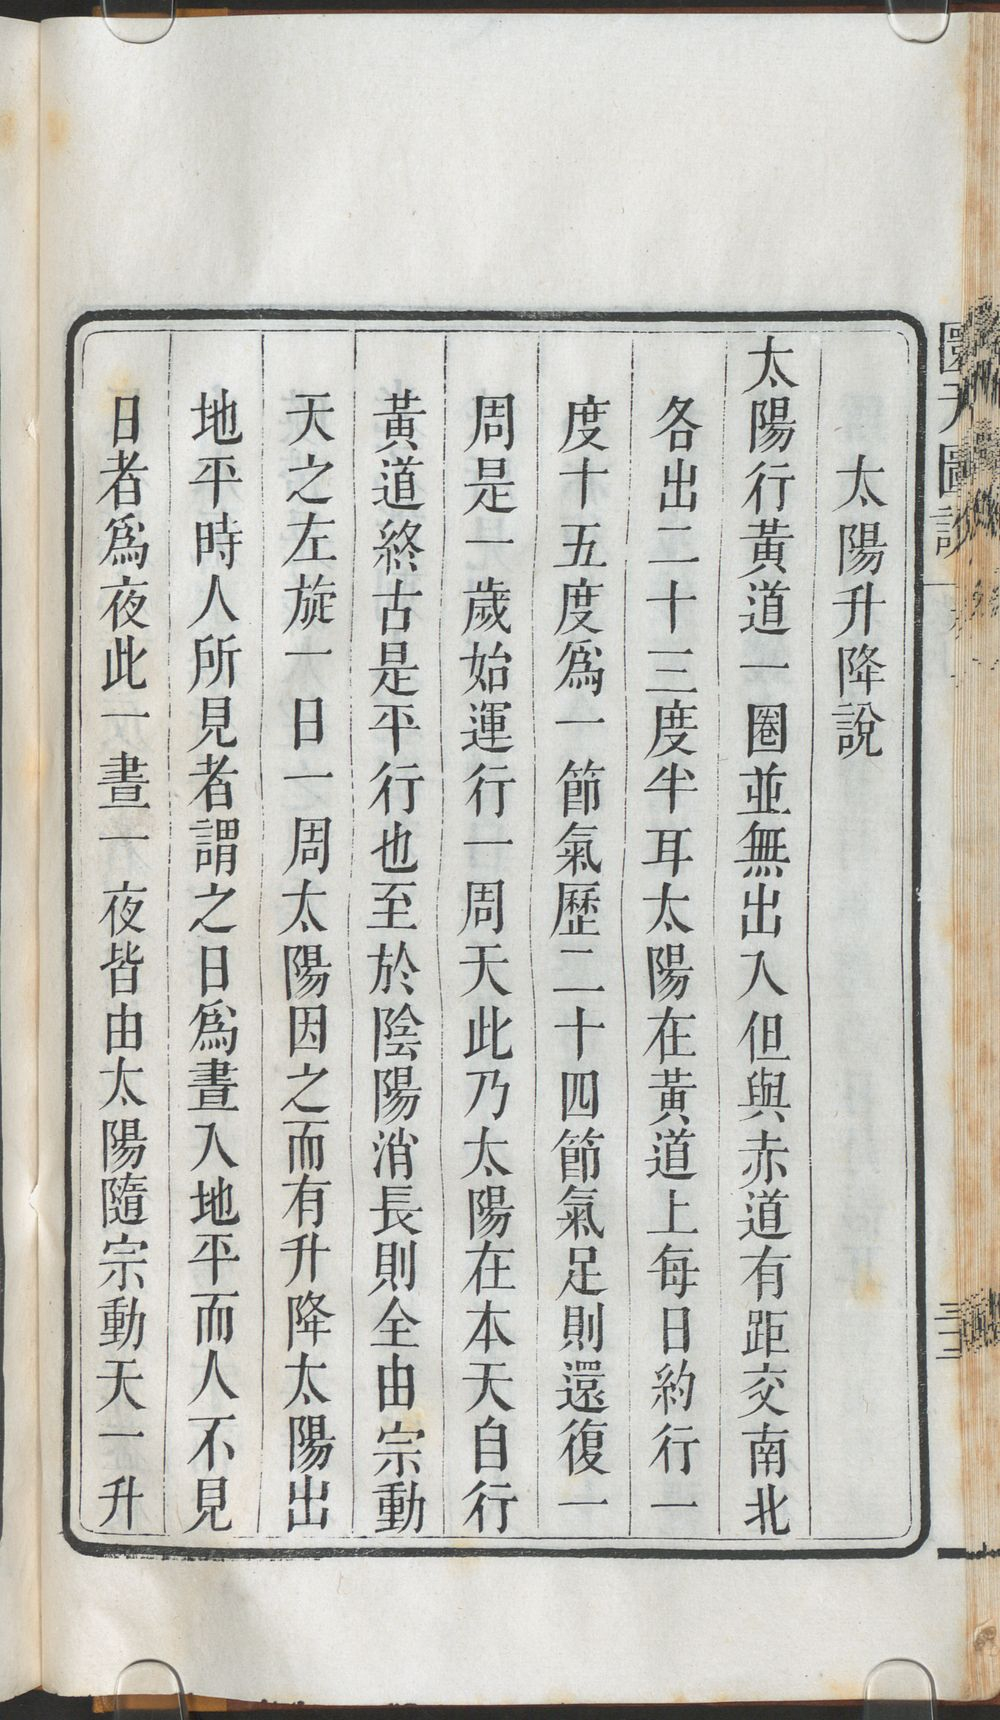 太陽升降說
太陽行黃道一圈並無出入但與赤道有距交南北
各出二十三度半耳太陽在黃道上每日約行一
度十五度爲一節氣歷二十四節氣足則還復一
周是一歲始運行一周天此乃太陽在本天自行
黃道終古是平行也至於陰陽消長則全由宗動
天之左旋一日一周太陽因之而有升降太陽出
地平時人所見者謂之日爲晝入地平而人不見
日者爲夜此一晝一夜皆由太陽隨宗動天一升